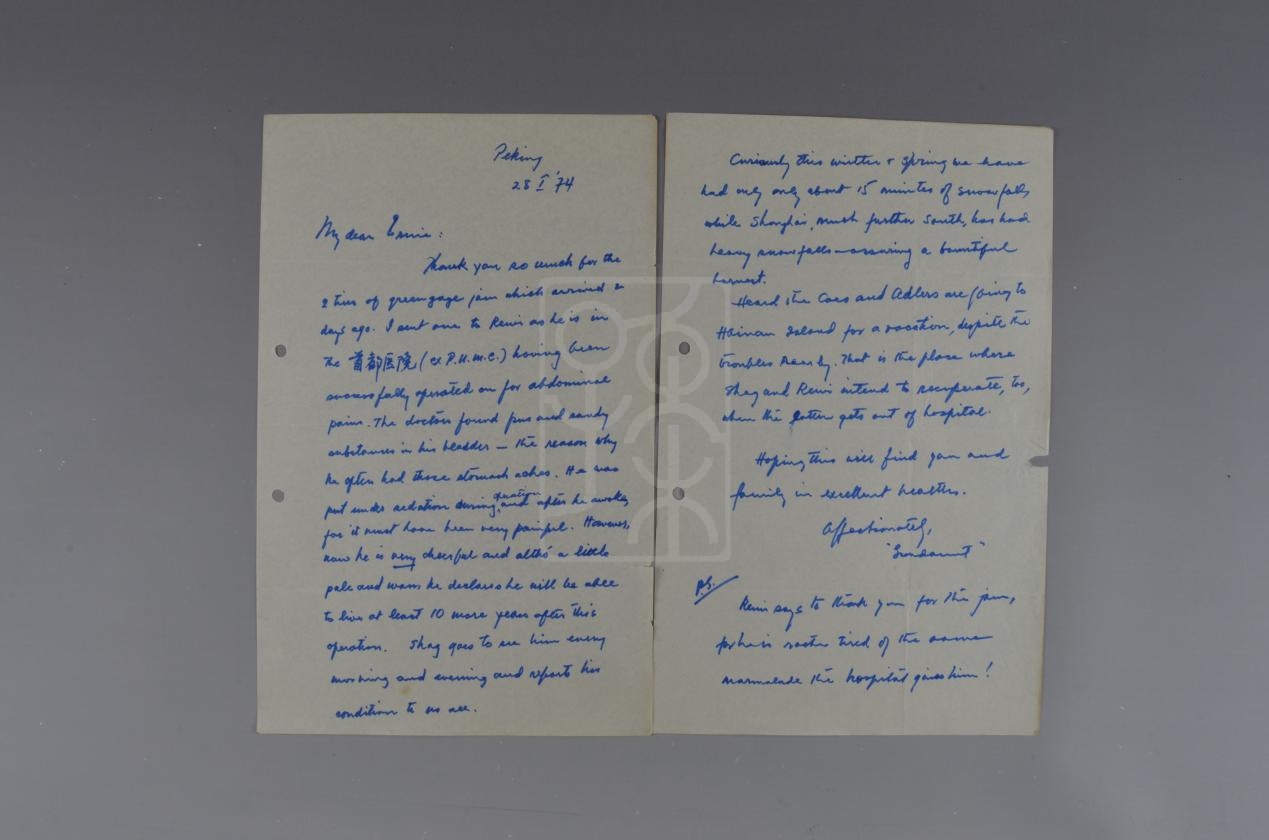 Peking
28 I '74
My dear Ernie:
Thank you so much for the
2 tins of greengage jam which arrived 2
days ago. I sent one to Rewi as he is in
the 首都医院 (ex P.U.M.C.) having been
successfully operated on for abdominal
pains. The doctors found pus and sandy
substances in his bladder — the reason why
he often had those stomach aches. He was
put under sedation during and after he awoke,
for it must have been very painful. However,
now he is very cheerful and altho' a little
pale and wan he declares he will be able
to live at least 10 more years after this
operation. Shag goes to see him every
morning and evening and reports his
condition to us all.
Curiously this winter & spring we have
had only only about 15 minutes of snowfalls
while Shanghai, much further south, has had
heavy snowfalls—assuring a bountiful
harvest.
Heard the Coes and Adlers are going to
Hainan Island for a vacation, despite the
troubles nearby. That is the place where
Shag and Rewi intend to recuperate, too,
when the latter gets out of hospital.
Hoping this will find you and
family in excellent health.
Affectionately,
P.S.
Rewi says to thank you for the jam,
for he is rather tired of the same
marmalade the hospital gives him!